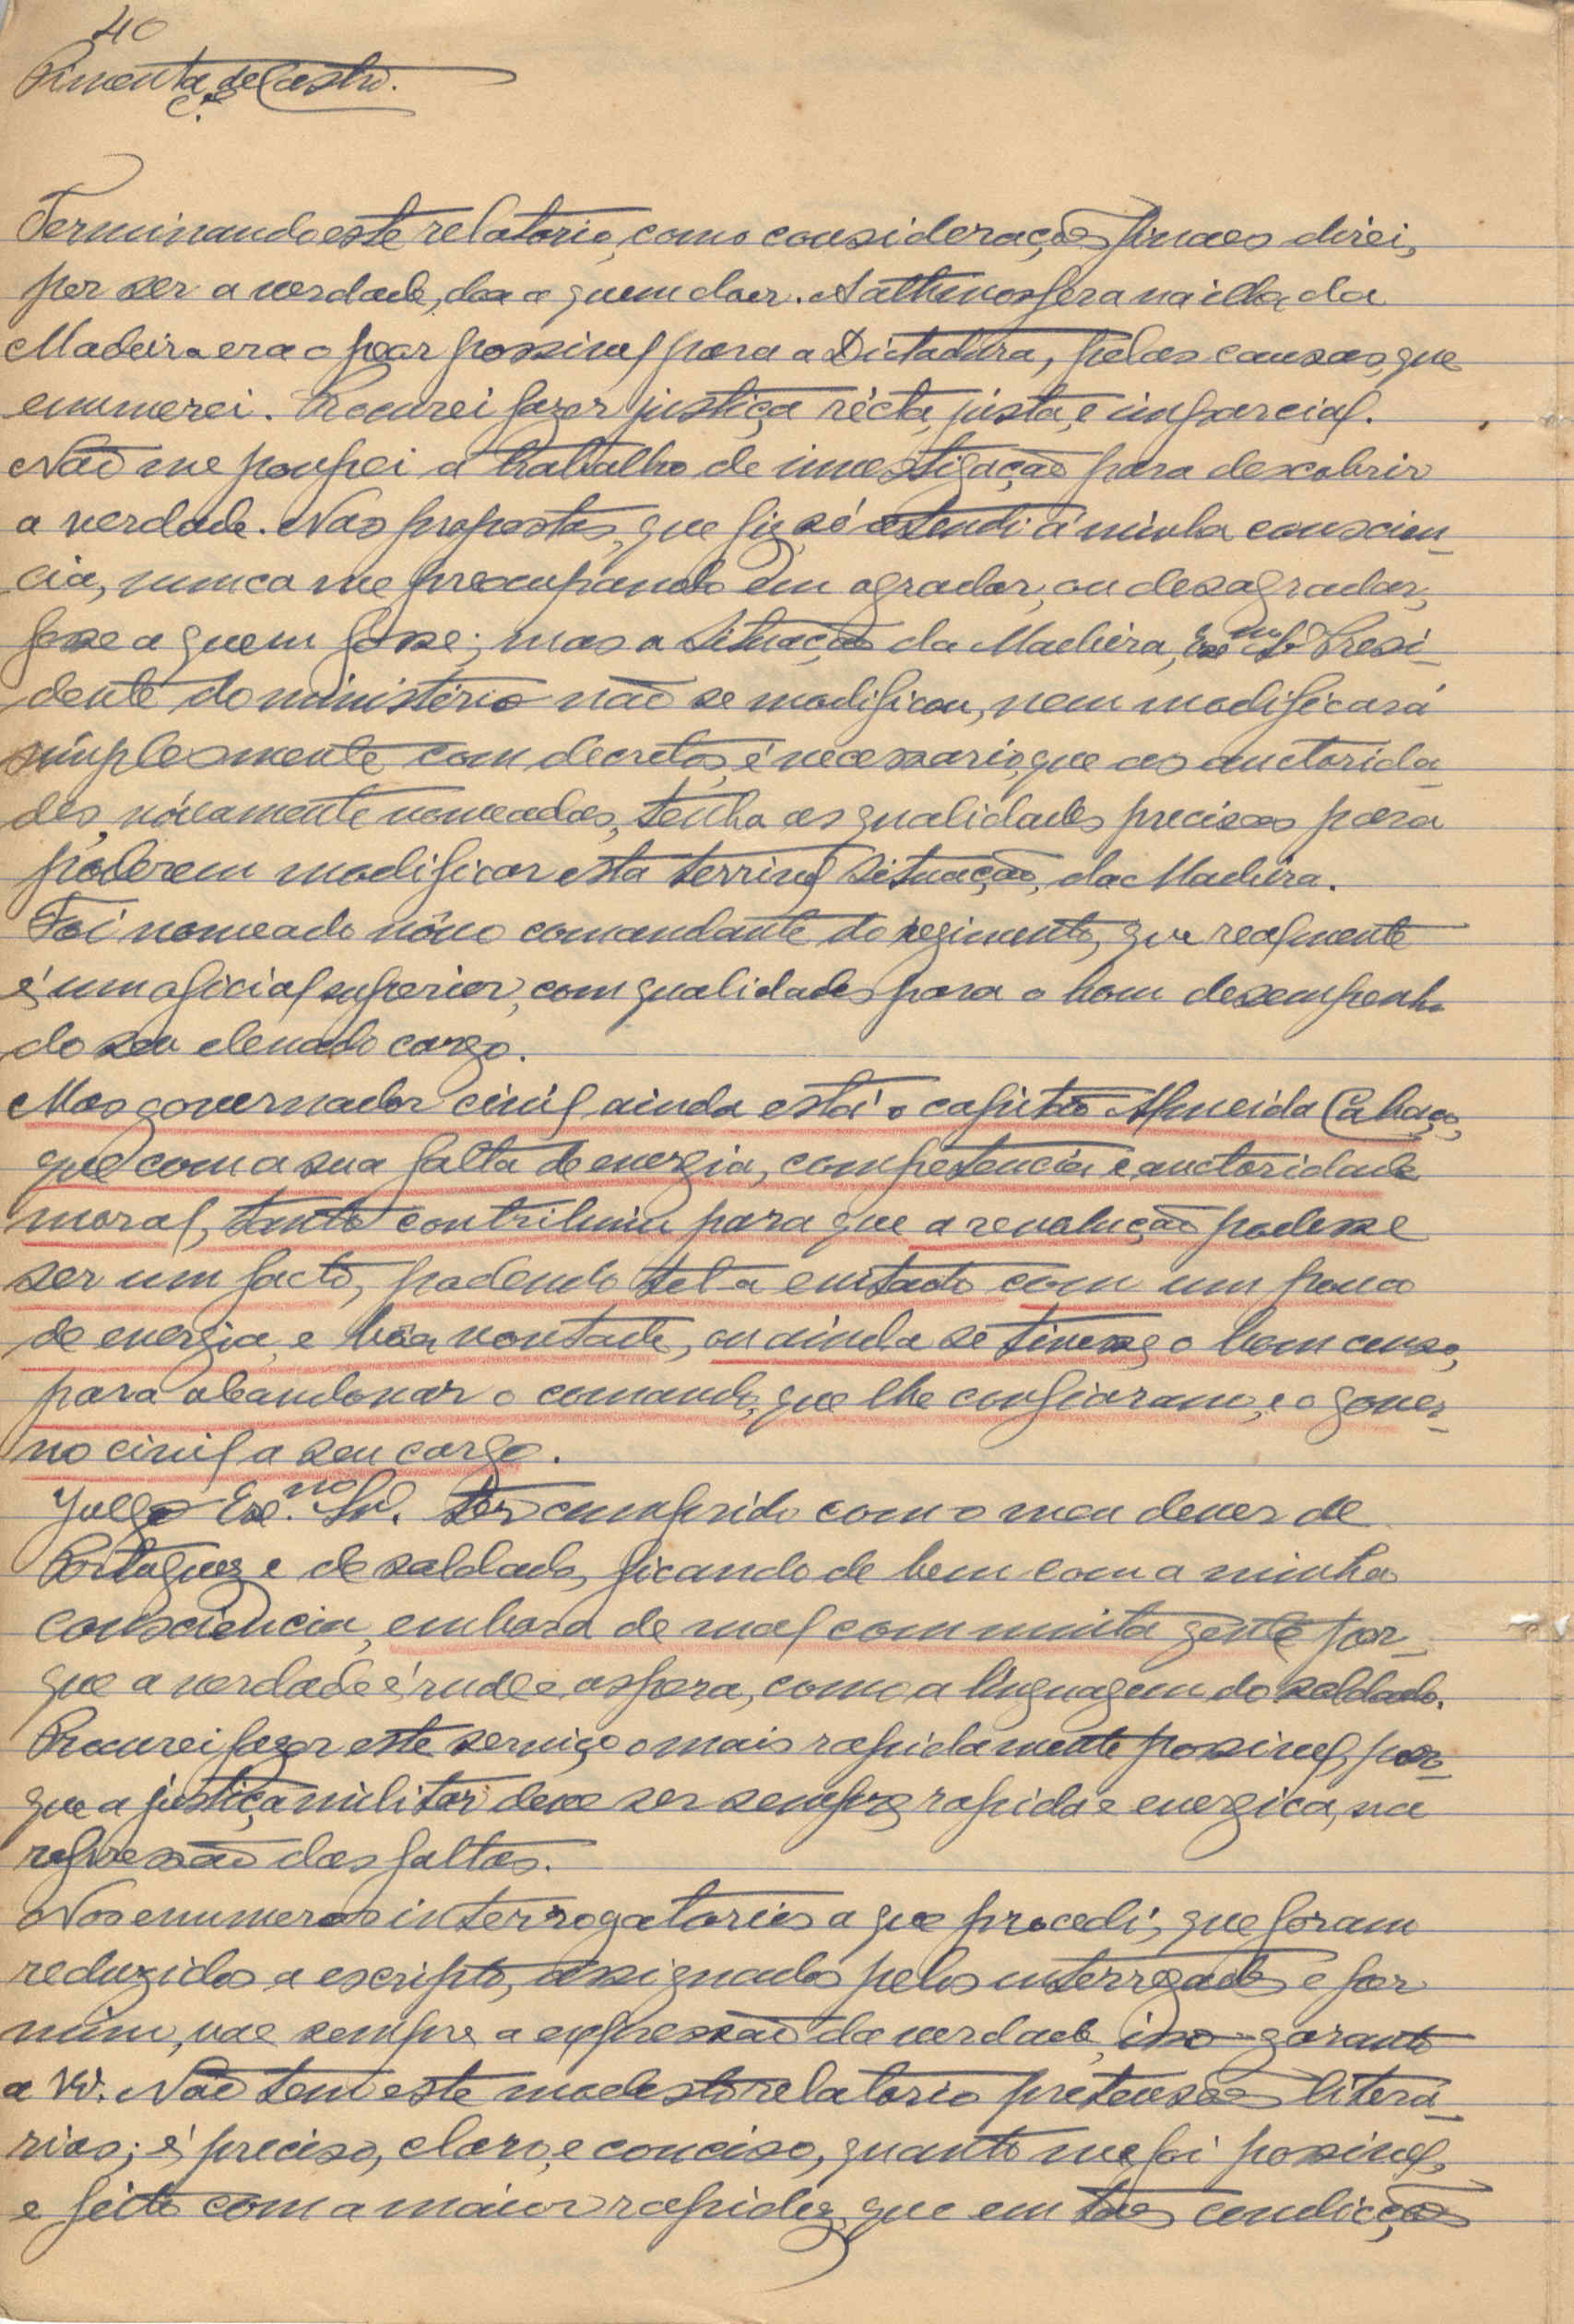 40
Pimenta de Castro.
Terminando este relatorio, como considerações finaes direi,
por ser a verdade, doa a quem doer. A athmosfera na ilha da
Madeira era o peor possivel para a Dictadura, pelas causas, que
enumerei. Procurei fazer justiça récta, justa, e imparcial.
Não me poupei a trabalho de investigação para descobrir
a verdade. Nas propostas, que fiz, só atendi á minha conscien-
cia, nunca me preocupando em agradar, ou desagradar,
fosse a quem fosse; mas a situação da Madeira, Exmo Sr Presi-
dente do ministério não se modificou, nem modificará
simplesmente com decretos, é necessario, que as auctorida-
des, nóvamente nomeadas, tenha as qualidades precisas para
poderem modificar esta terrivel situação, da Madeira.
Foi nomeado nôvo comandante do regimento, que realmente
é um oficial superior, com qualidades para o bom desempenho
do seu elevado cargo.
Mas governador civil ainda está o capitão Almeida Cabaço,
que com a sua falta de energia, competencia e auctoridade
moral, tanto contribuiu para que a revolução podesse
ser um facto, podendo tel-a evitado com um pouco
de energia, e bôa vontade, ou ainda se tivesse o bom censo,
para abandonar o comando, que lhe confiaram, e o gover-
no civil a seu cargo.
Julgo Exe.mo Sr. ter cumprido com o meu dever de
Portuguez e de soldado, ficando de bem com a minha
consciencia, embora de mal com muita gente por-
que a verdade é rude e aspera, como a linguagem do soldado.
Procurei fazer este serviço o mais rapidamente possivel, por-
que a justiça militar deve ser sempre rapida e energica, na
repressão das faltas.
Nos enumeros interrogatorios a que procedi, que foram
reduzidos a escripto, assignados pelos interrogados e por
mim, vae sempre a expressão da verdade, isso garanto
a V.. Não tem este modesto relatorio pretensões litera-
rias; é preciso, claro, e conciso, quanto me foi possivel,
e feito com a maior rapidez, que em taes condicções